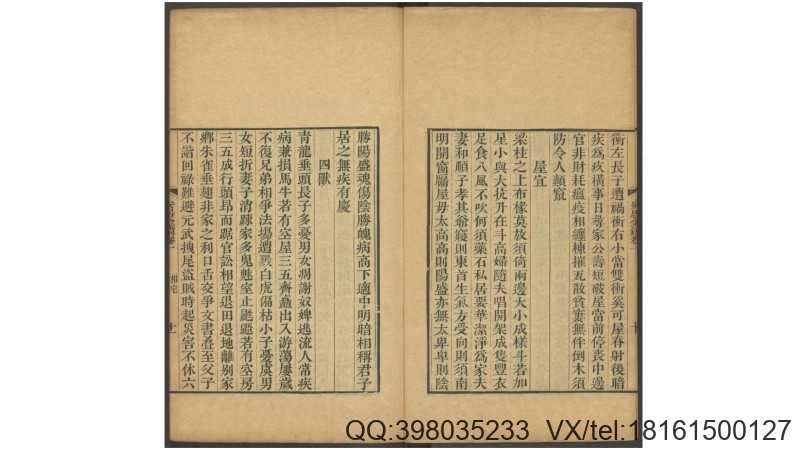 衝左長子遭禍衝右小當雙衝奚可屋脊射後暗
疾爲疚橫事日尋家公壽短破屋當前停喪中邊
官非財耗瘟疫相纏棟摧瓦散貧寠無伴倒木須
防令人顛竄
屋宜
梁柱之上布椽莫放須倚兩邊大小成樣斗若加
星小與大抗升在斗高婦隨夫唱開架成隻豐衣
足食八風不吹何須藥石私居要華潔淨爲家夫
妻和順子孝其爺寢則東首生氣方受向則須南
明開窗牖屋毋太高高則陽盛亦無太卑卑則陰
勝陽盛魂傷陰勝魄病高下適中明暗相稱君子
居之無疾有慶
四獸
青龍垂頭長子多憂男女凋謝奴婢逃流人常疾
病兼損馬牛若有空屋三五齊矗出入游蕩屢歲
不復兄弟相爭法場遭戮白虎偏枯小子憂虞男
女短折妻子清踈家多鬼魅室止鼪鼯若有空房
三五成行頭昂而踞官訟相望退田退地離別家
鄉朱雀垂翅非家之利口舌交爭文書沓至父子
不諧回祿難避元武拽尾盜賊時起災害不休六
相宅
十
十一
QQ:398035233 VX/tel:18161500127